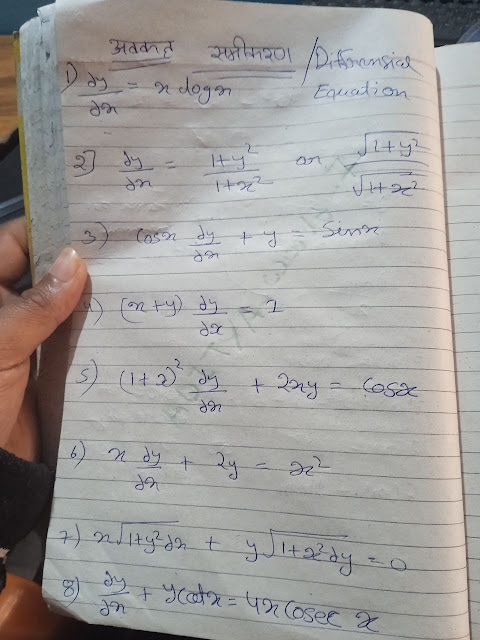 अवकल समीकरण / Differensial Equation
1) dy/dx = x logx
2] dy/dx = 1+y²/1+x² or √1+y²/√1+x²
3) cosx dy/dx + y = sinx
4) (x+y) dy/dx = 1
5) (1+x)² dy/dx + 2xy = cosx
6) x dy/dx + 2y = x²
7) x√1+y² dx + y√1+x² dy = 0
8) dy/dx + ycotx = 4x cosec x